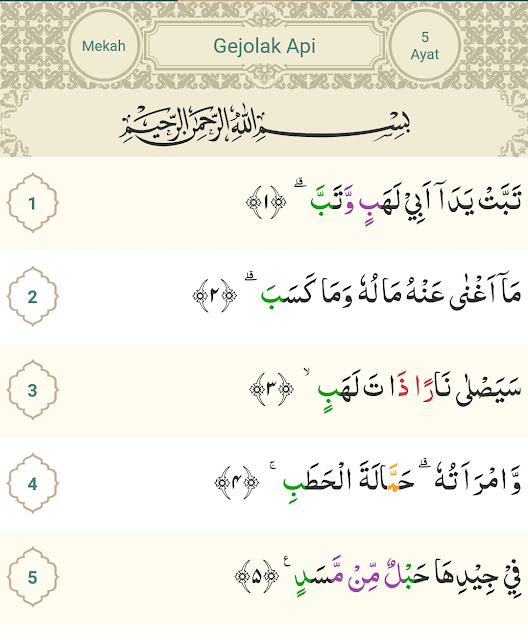 Mekah
Gejolak Api
5
Ayat
بِسْمِ اللهِ الرَّحْمٰنِ الرَّحِيْمِ
تَبَّتْ يَدَآ اَبِيْ لَهَبٍ وَّتَبَّ ۗ ﴿١﴾
1
مَآ اَغْنٰى عَنْهُ مَالُهٗ وَمَا كَسَبَ ۗ ﴿٢﴾
2
سَيَصْلٰى نَارًا ذَاتَ لَهَبٍ ۙ ﴿٣﴾
3
وَّامْرَاَتُهٗ ۗ حَمَّالَةَ الْحَطَبِ ۚ ﴿۴﴾
4
فِيْ جِيْدِهَا حَبْلٌ مِّنْ مَّسَدٍ ࣖ ﴿۵﴾
5